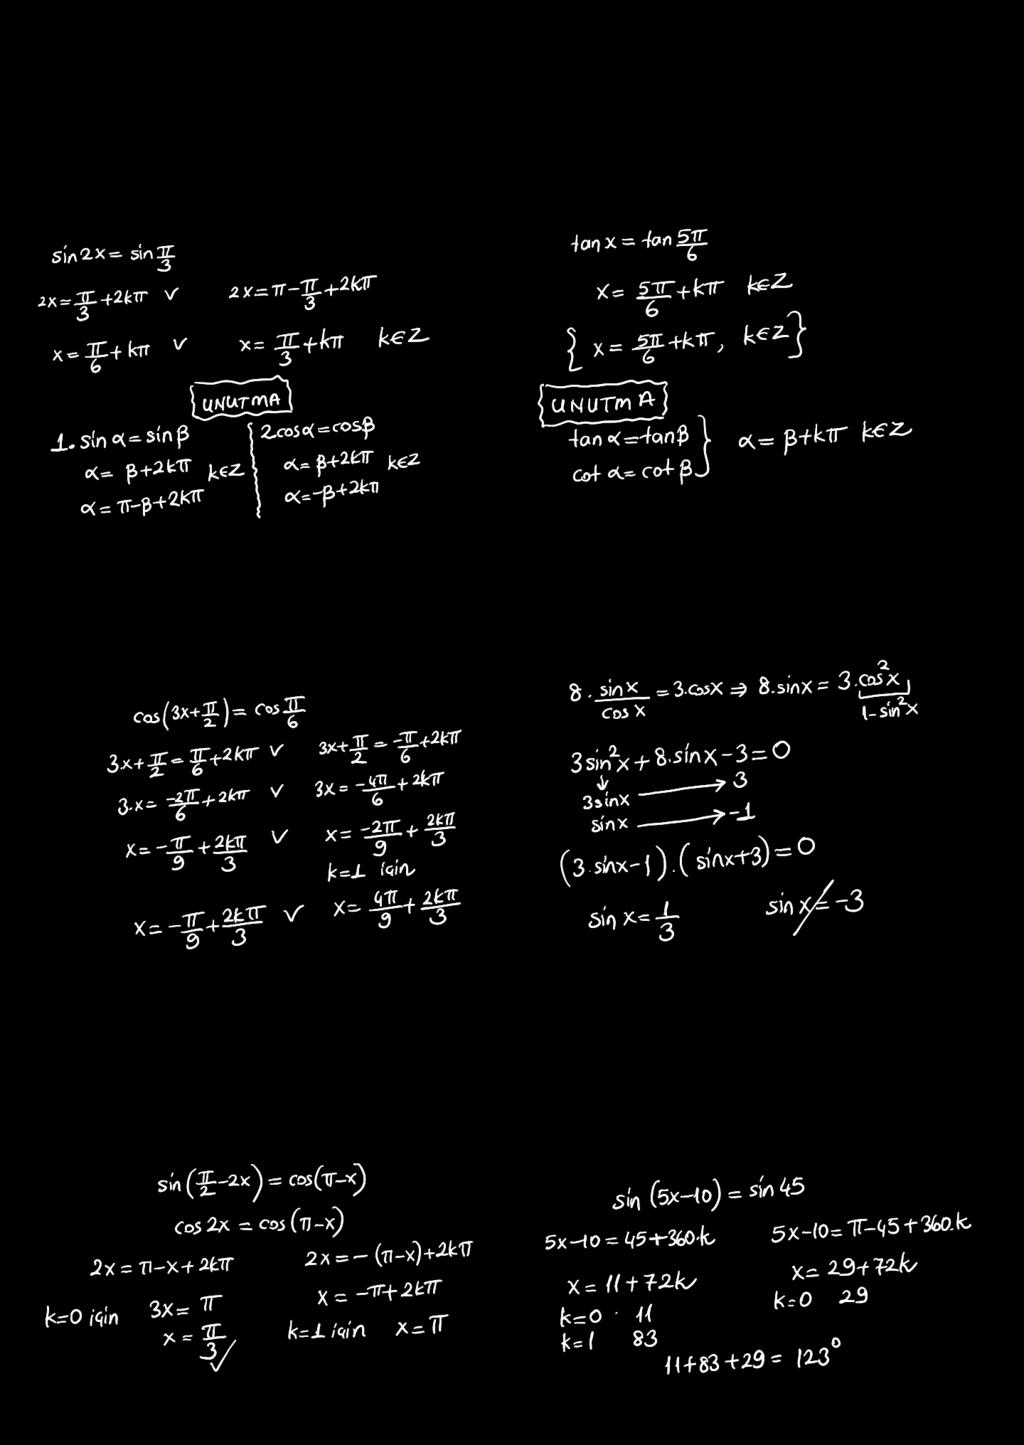 sin2x = sin π/3
2x = π/3 + 2kπ ∨ 2x = π - π/3 + 2kπ
x = π/6 + kπ ∨ x = π/3 + kπ k∈Z
UNUTMA
1. sin α = sin β
α = β + 2kπ k∈Z
α = π - β + 2kπ
2. cosα = cosβ
α = β + 2kπ k∈Z
α = -β + 2kπ
tan x = tan 5π/6
x = 5π/6 + kπ k∈Z
{ x = 5π/6 + kπ, k∈Z }
UNUTMA
tan α = tan β
cot α = cot β } α = β + kπ k∈Z
cos(3x + π/2) = cos π/6
3x + π/2 = π/6 + 2kπ ∨ 3x + π/2 = -π/6 + 2kπ
3.x = -2π/6 + 2kπ ∨ 3x = -4π/6 + 2kπ
x = -π/9 + 2kπ/3 ∨ x = -2π/9 + 2kπ/3
k=1 için
x = -π/9 + 2kπ/3 ∨ x = 4π/9 + 2kπ/3
8 . sinx/cosx = 3.cosx ⇒ 8.sinx = 3.cos²x
1-sin²x
3sin²x + 8.sinx - 3 = 0
3sinx → 3
sinx → -1
(3.sinx-1).(sinx+3) = 0
sin x = 1/3 sinx = -3
sin(π/2 - 2x) = cos(π-x)
cos2x = cos(π-x)
2x = π - x + 2kπ 2x = -(π-x) + 2kπ
k=0 için 3x = π x = -π + 2kπ
x = π/3 ✓ k=1 için x = π
sin (5x-10) = sin 45
5x-10 = 45+360.k 5x-10 = π-45+360.k
x = 11+72k x = 29+72k
k=0 11 k=0 29
k=1 83
11+83+29 = 123°